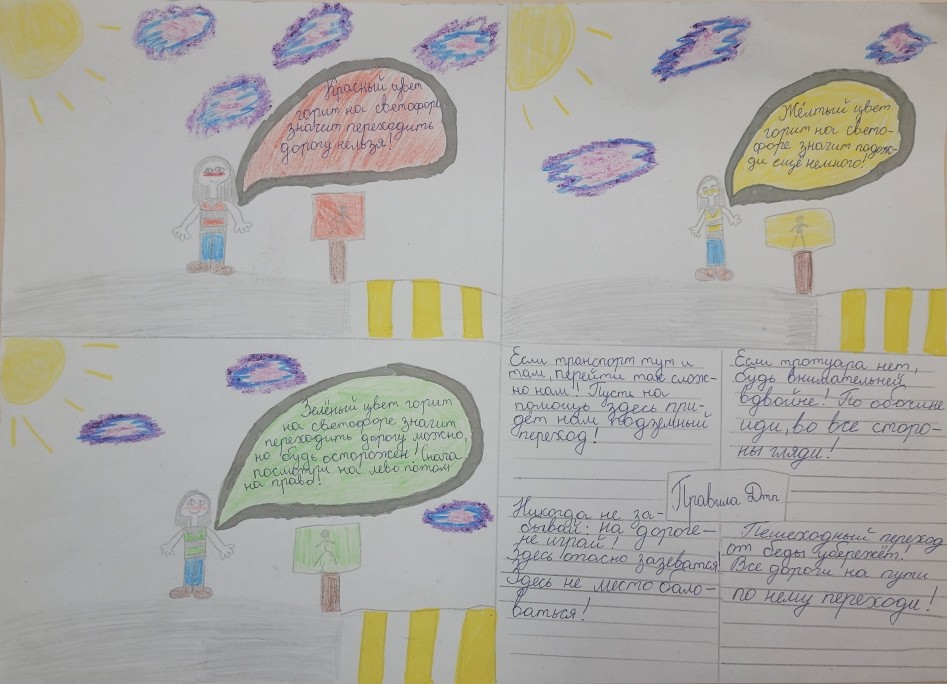 Красный цвет
горит на светофоре
значит переходить
дорогу нельзя!
Жёлтый цвет
горит на свето-
форе значит подож-
ди ещё немного!
Зелёный цвет горит
на светофоре значит
переходить дорогу можно,
но будь осторожен! Снача
посмотри на лево потом
на право!
Если транспорт тут и
там, перейти так слож-
но нам! Пусть на
помощь здесь при-
дёт нам подземный
переход!
Если тротуара нет,
будь внимательней
вдвойне! По обочине
иди, во все сторо-
ны гляди!
Правила Дтп
Никогда не за-
бывай: На дороге-
не играй!
Здесь опасно зазеватся!
Здесь не место бало-
ваться!
Пешеходный переход
от беды убережёт.
Все дороги на пути
по нему переходи!